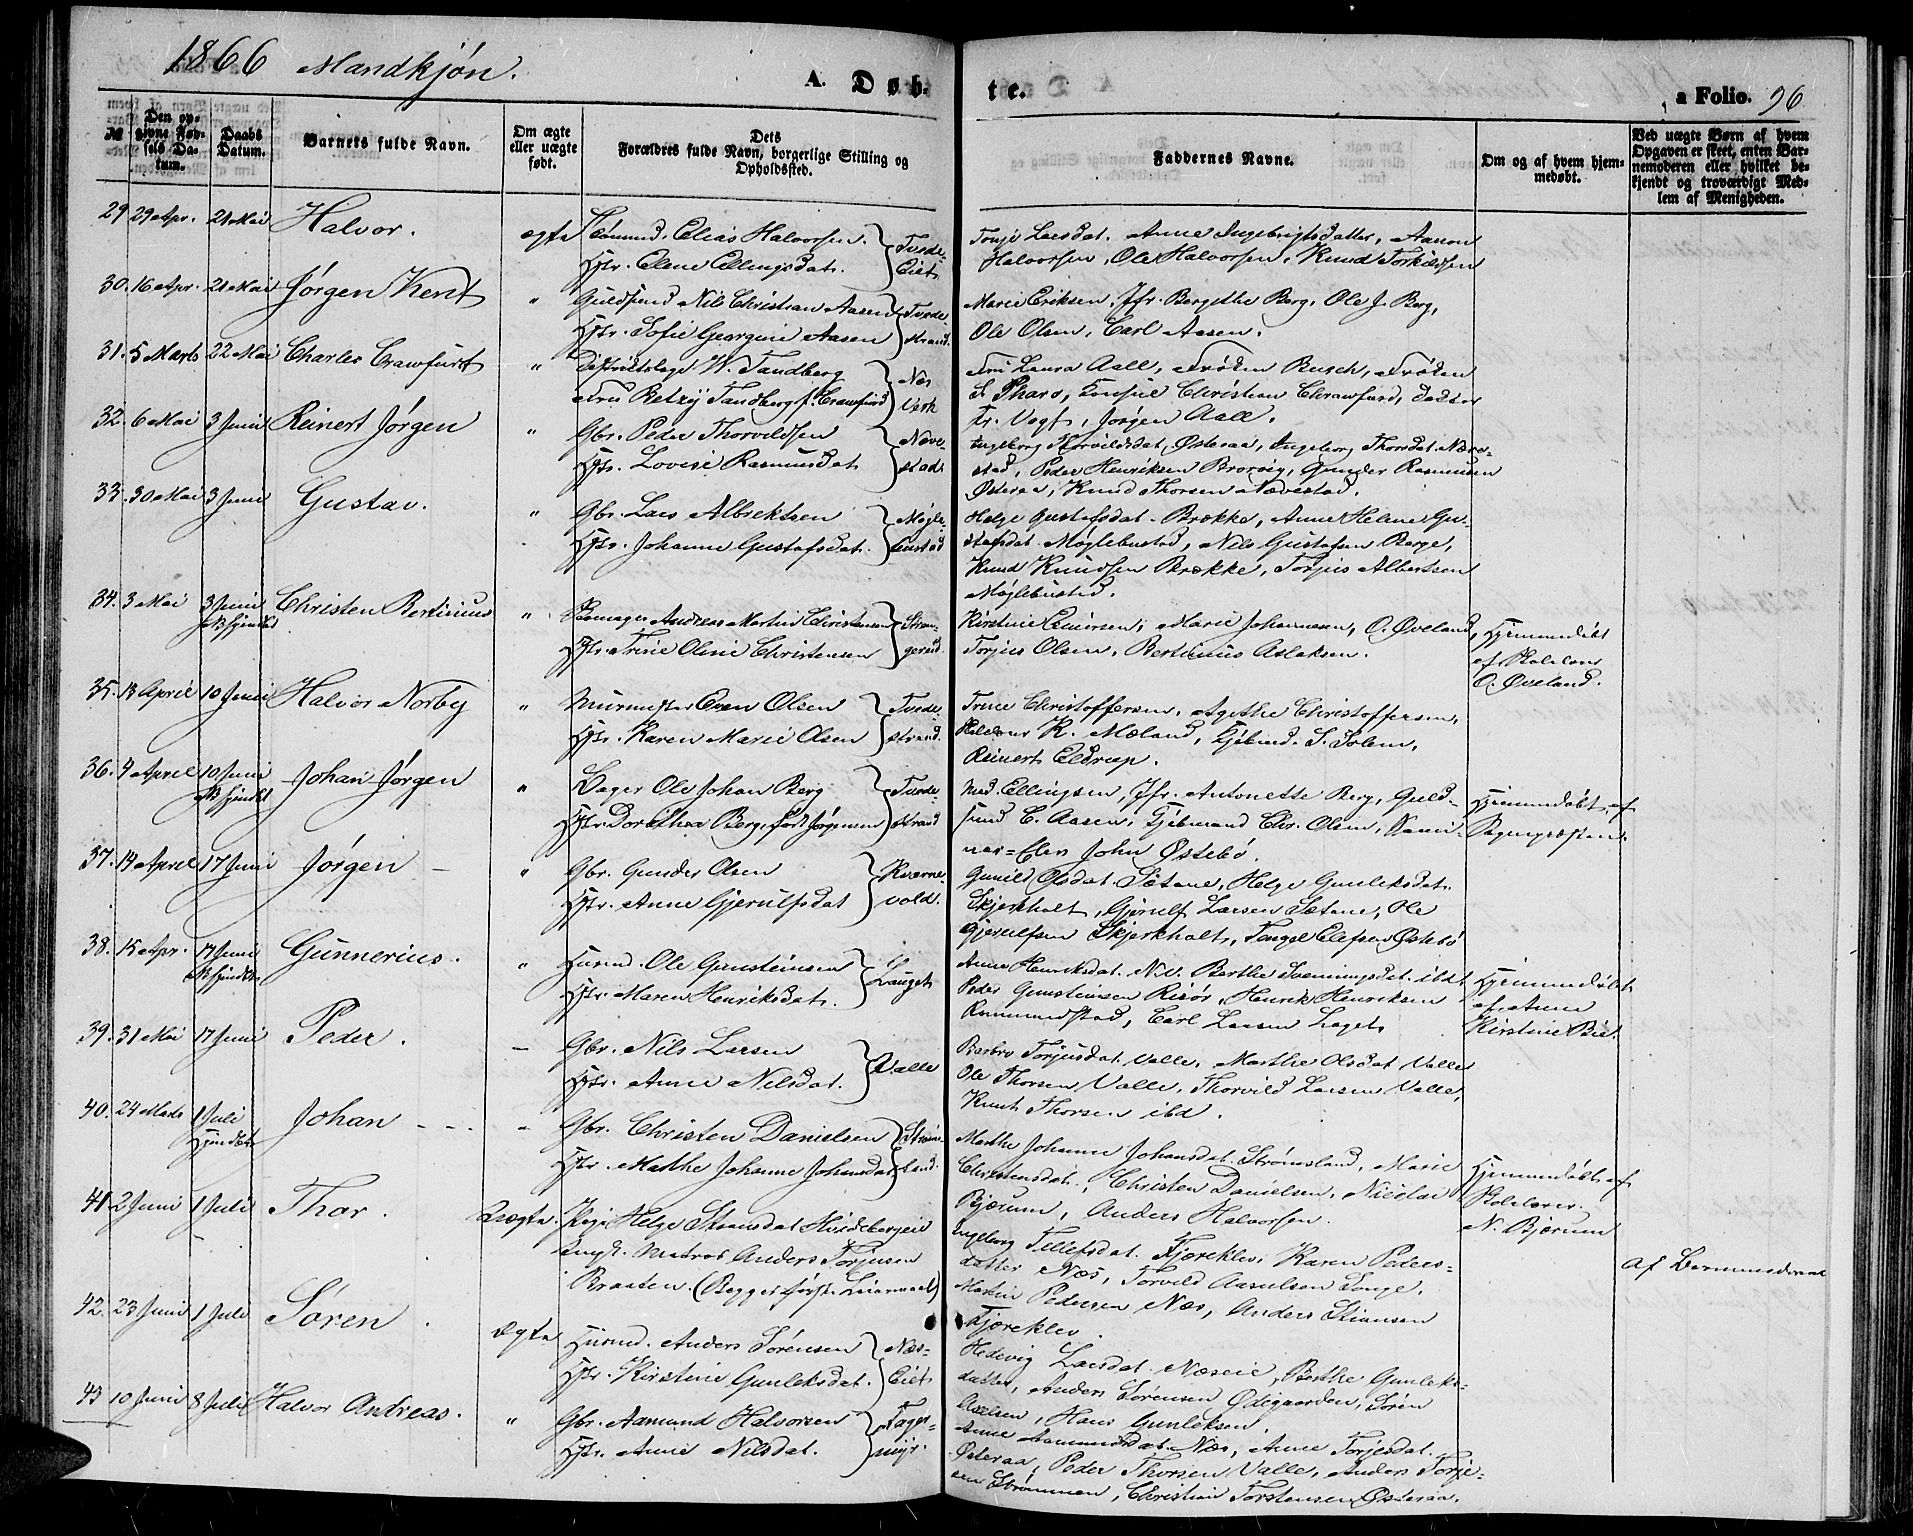 1866 Mandkjøn.
A. Døb-
te.
a Folio. 96
№
Den op-
givne Fød-
sels Da-
tum.
Daabs
Datum.
Barnets fulde Navn.
Om ægte
eller uægte
født.
Dets
Forældres fulde Navn, borgerlige Stilling og
Opholdssted.
Faddernes Navne.
Om og af hvem hjem-
medøbt.
Ved uægte Børn af hvem
Opgaven er skeet, enten Bar-
nemoderen eller hvilket be-
kjendt og troværdigt Med-
lem af Menigheden.
29 29 Apr. 21 Mai Halvor. ægte Tømmd. Elias Halvorsen. Tvede-
Hstr. Elene Ellingsdat. Eiet
Tonje Larsdat. Anne Ingebrigtsdatter, Aanon
Halvorsen, Ole Halvorsen, Knud Torkildsen
30. 16 Apr. 21 Mai Jørgen Kent " Guldsmd Nils Christian Aasen Tvede-
Hstr. Sofie Georgine Aasen strand.
Marie Eriksen, Jfr. Bergithe Berg, Ole J. Berg,
Ole Olsen, Carl Aasen.
31. 5 Marts 22 Mai Charles Crawfurt " Distriktslæge W. Tandberg Næs
Fru Betzy Tandberg f. Crawfurd Verk
Fru Laura Aall, Frøken Busch, Frøken
S. Pharo, Konsul Christian Chrawfurd, Doctor
Fr. Vogt, Jørgen Aall.
32. 6 Mai 3 Juni Reinert Jørgen " Gbr. Peder Thorvildsen Næve-
Hstr. Lovise Rasmusdat. stad
Ingeborg Thorvildsdat. Østeraa, Ingeborg Thorsdat. Næve-
stad, Peder Henriksen Brorvig, Gunder Rasmusen
Østeraa, Knud Thorsen Nævestad.
33. 30 Mai 3 Juni Gustav. " Gbr. Lars Albrektsen Møgle-
Hstr. Johanne Gustafsdat. bustad
Helge Gustafsdat. Brække, Anne Helene Gu-
stafsdat. Møglebustad, Nils Gustafsen Berge,
Knud Knudsen Brække, Torjus Albertsen
Møglebustad.
34. 3 Mai 3 Juni Christen Bertinius " Andreas Martin Christensen
Hstr. Trine Oline Christensen
Kirstine Marie Johannesen, O. Øveland,
Torjus Olsen, Bertinius Aslaksen.
Hjemmedøbt
af Skolelærer
O. Øveland.
35. 13 April 10 Juni Halvor Norby " Murmester Even Olsen Tvede-
Hstr. Karen Marie Olsen strand.
Trine Christoffersen, Agethe Christoffersen,
K. Mæland, Kjøbmd. S. Solem,
Reinert Eldrup.
36. 4 April 10 Juni Johan Jørgen " Bager Ole Johan Berg Tvede-
Hstr. Dorothea Berg, født Jørgensen strand
Mad. Ellingsen, Jfr. Antonette Berg, Guld-
smd C. Aasen, Kjøbmand Chr. Olsen, Semi-
nar-Elev John Østebø.
Hjemmedøbt af
Sognepræsten.
37. 14 April 17 Juni Jørgen — " Gbr. Gunder Olsen Kværne-
Hstr. Anne Gjerulfsdat vold.
Gunild Olsdat. Sætane, Helge Gunleksdat.
Skjerkholt, Gjerulf Larsen Sætane, Ole
Gjerulfsen Skjerkholt, Tengel Elefsen Østebø
38. 15 Apr. 17 Juni Gunnerius. " Husmd. Ole Gunsteinsen Lauget
Hstr. Maren Henriksdat.
Anne Henriksdat. Berthe Svenningsdat. ibd
Peder Gunsteinsen Risør, Henrik Henriksen
Rammundstad, Carl Larsen Laget
Hjemmedøbt
af Anne
Kirstine
39. 31 Mai 17 Juni Peder. — Gbr. Nils Larsen Valle
Hstr. Anne Nilsdat.
Barbro Torjusdat. Valle, Marthe Olsdat Valle
Ole Thorsen Valle, Thorvild Larsen Valle,
Knut Thorsen ibd.
40. 24 Marts 1 Juli Johan - - - - Gbr. Christen Danielsen Strøms-
Hstr. Mathe Johanne Johansdat land.
Marthe Johanne Johansdat. Strømsland, Marie
Christensdat., Christen Danielsen, Nicolai
Bjærum, Anders Halvorsen.
Hjemmedøbt af
Skolelærer
N. Bjærum
41. 2 Juni 1 Juli Thor. Uægte. Pige Helge
Ungk. Matros Anders Torjusen
Braaten. (Begges første Leiermaal)
Ingeborg Tellefsdat. Fjæreklev, Karen Peders-
datter Næs, Torvild Songe,
Martin Pedersen Næs, Anders Stiansen
Fjæreklev.
af Barnemoderen
42. 23 Juni 1 Juli Søren. Ægte Husmd. Anders Sørensen Næs-
Hstr. Kirstine Gunleksdat. Eiet
Hedevig Larsdat. Næseie, Berthe Gunleks-
datter, Anders Sørensen Ødegaarden, Søren
Hans Gunleksen.
43 10 Juni 8 Juli Halvor Andreas. " Gbr. Aamund Halvorsen Fager-
Hstr. Anne Nilsdat. myr.
Anne Aamundsdat. Næs, Anne Torjesdat.
Østeraa, Peder Thorsen Valle, Anders Torje-
sen Strømmen, Christian Torstensen Østeraa.